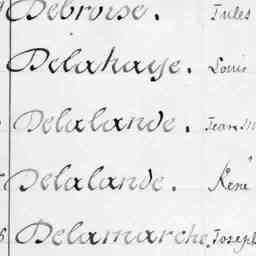 Debroise. Jules
Delahaye. Louis
Delalande. Jean M
Delalande. René
Delamarche. Joseph